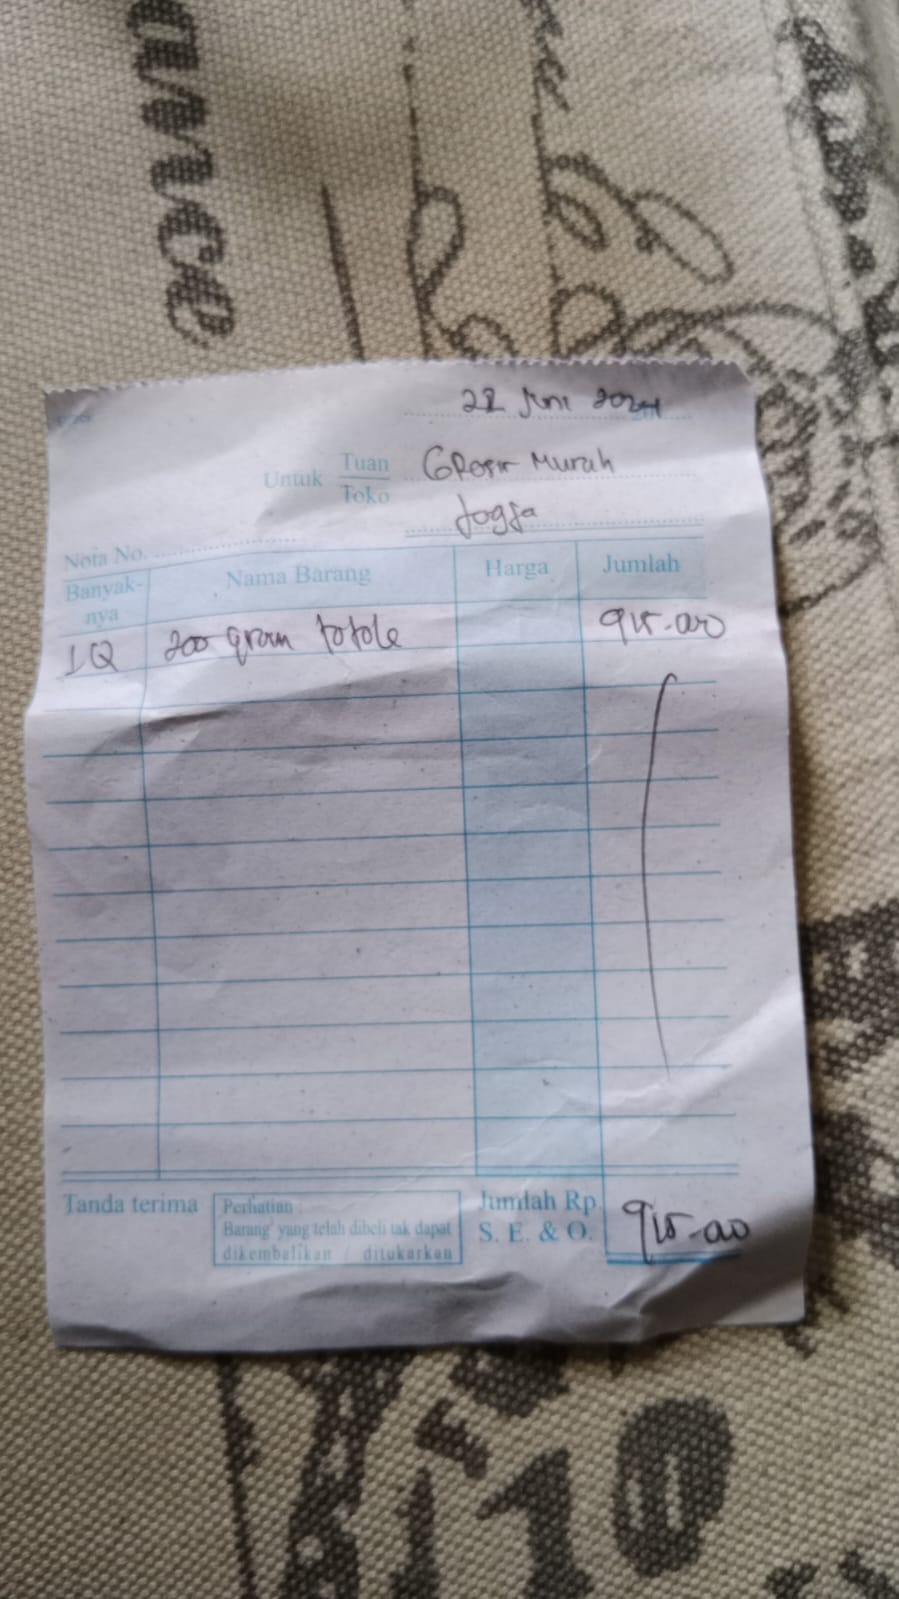 22 Juni 2024
Untuk Tuan Grosir Murah
Toko Jogja
Nota No.
Banyak-nya Nama Barang Harga Jumlah
1 200 gram totole 915.000
Tanda terima
Perhatian :
Barang yang telah dibeli tak dapat
dikembalikan / ditukarkan
Jumlah Rp. 915.000
S. E. & O.
ance